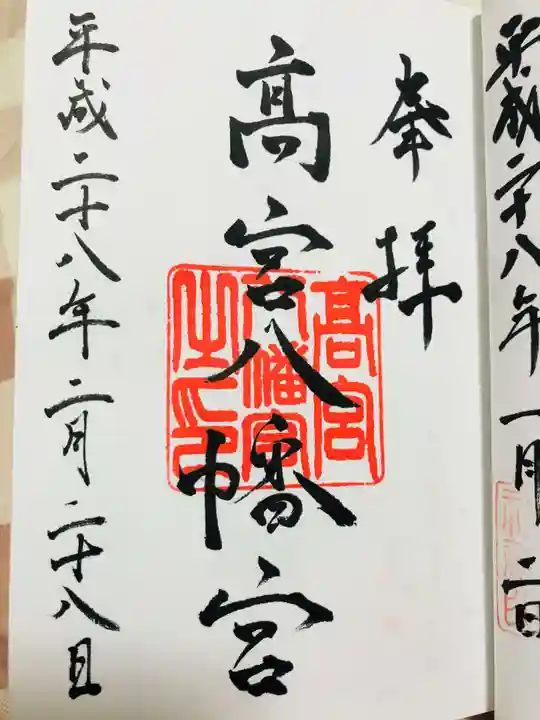 平成二十八年一月二日
奉拝
髙宮八幡宮
髙宮
八幡宮
之印
平成二十八年二月二十八日